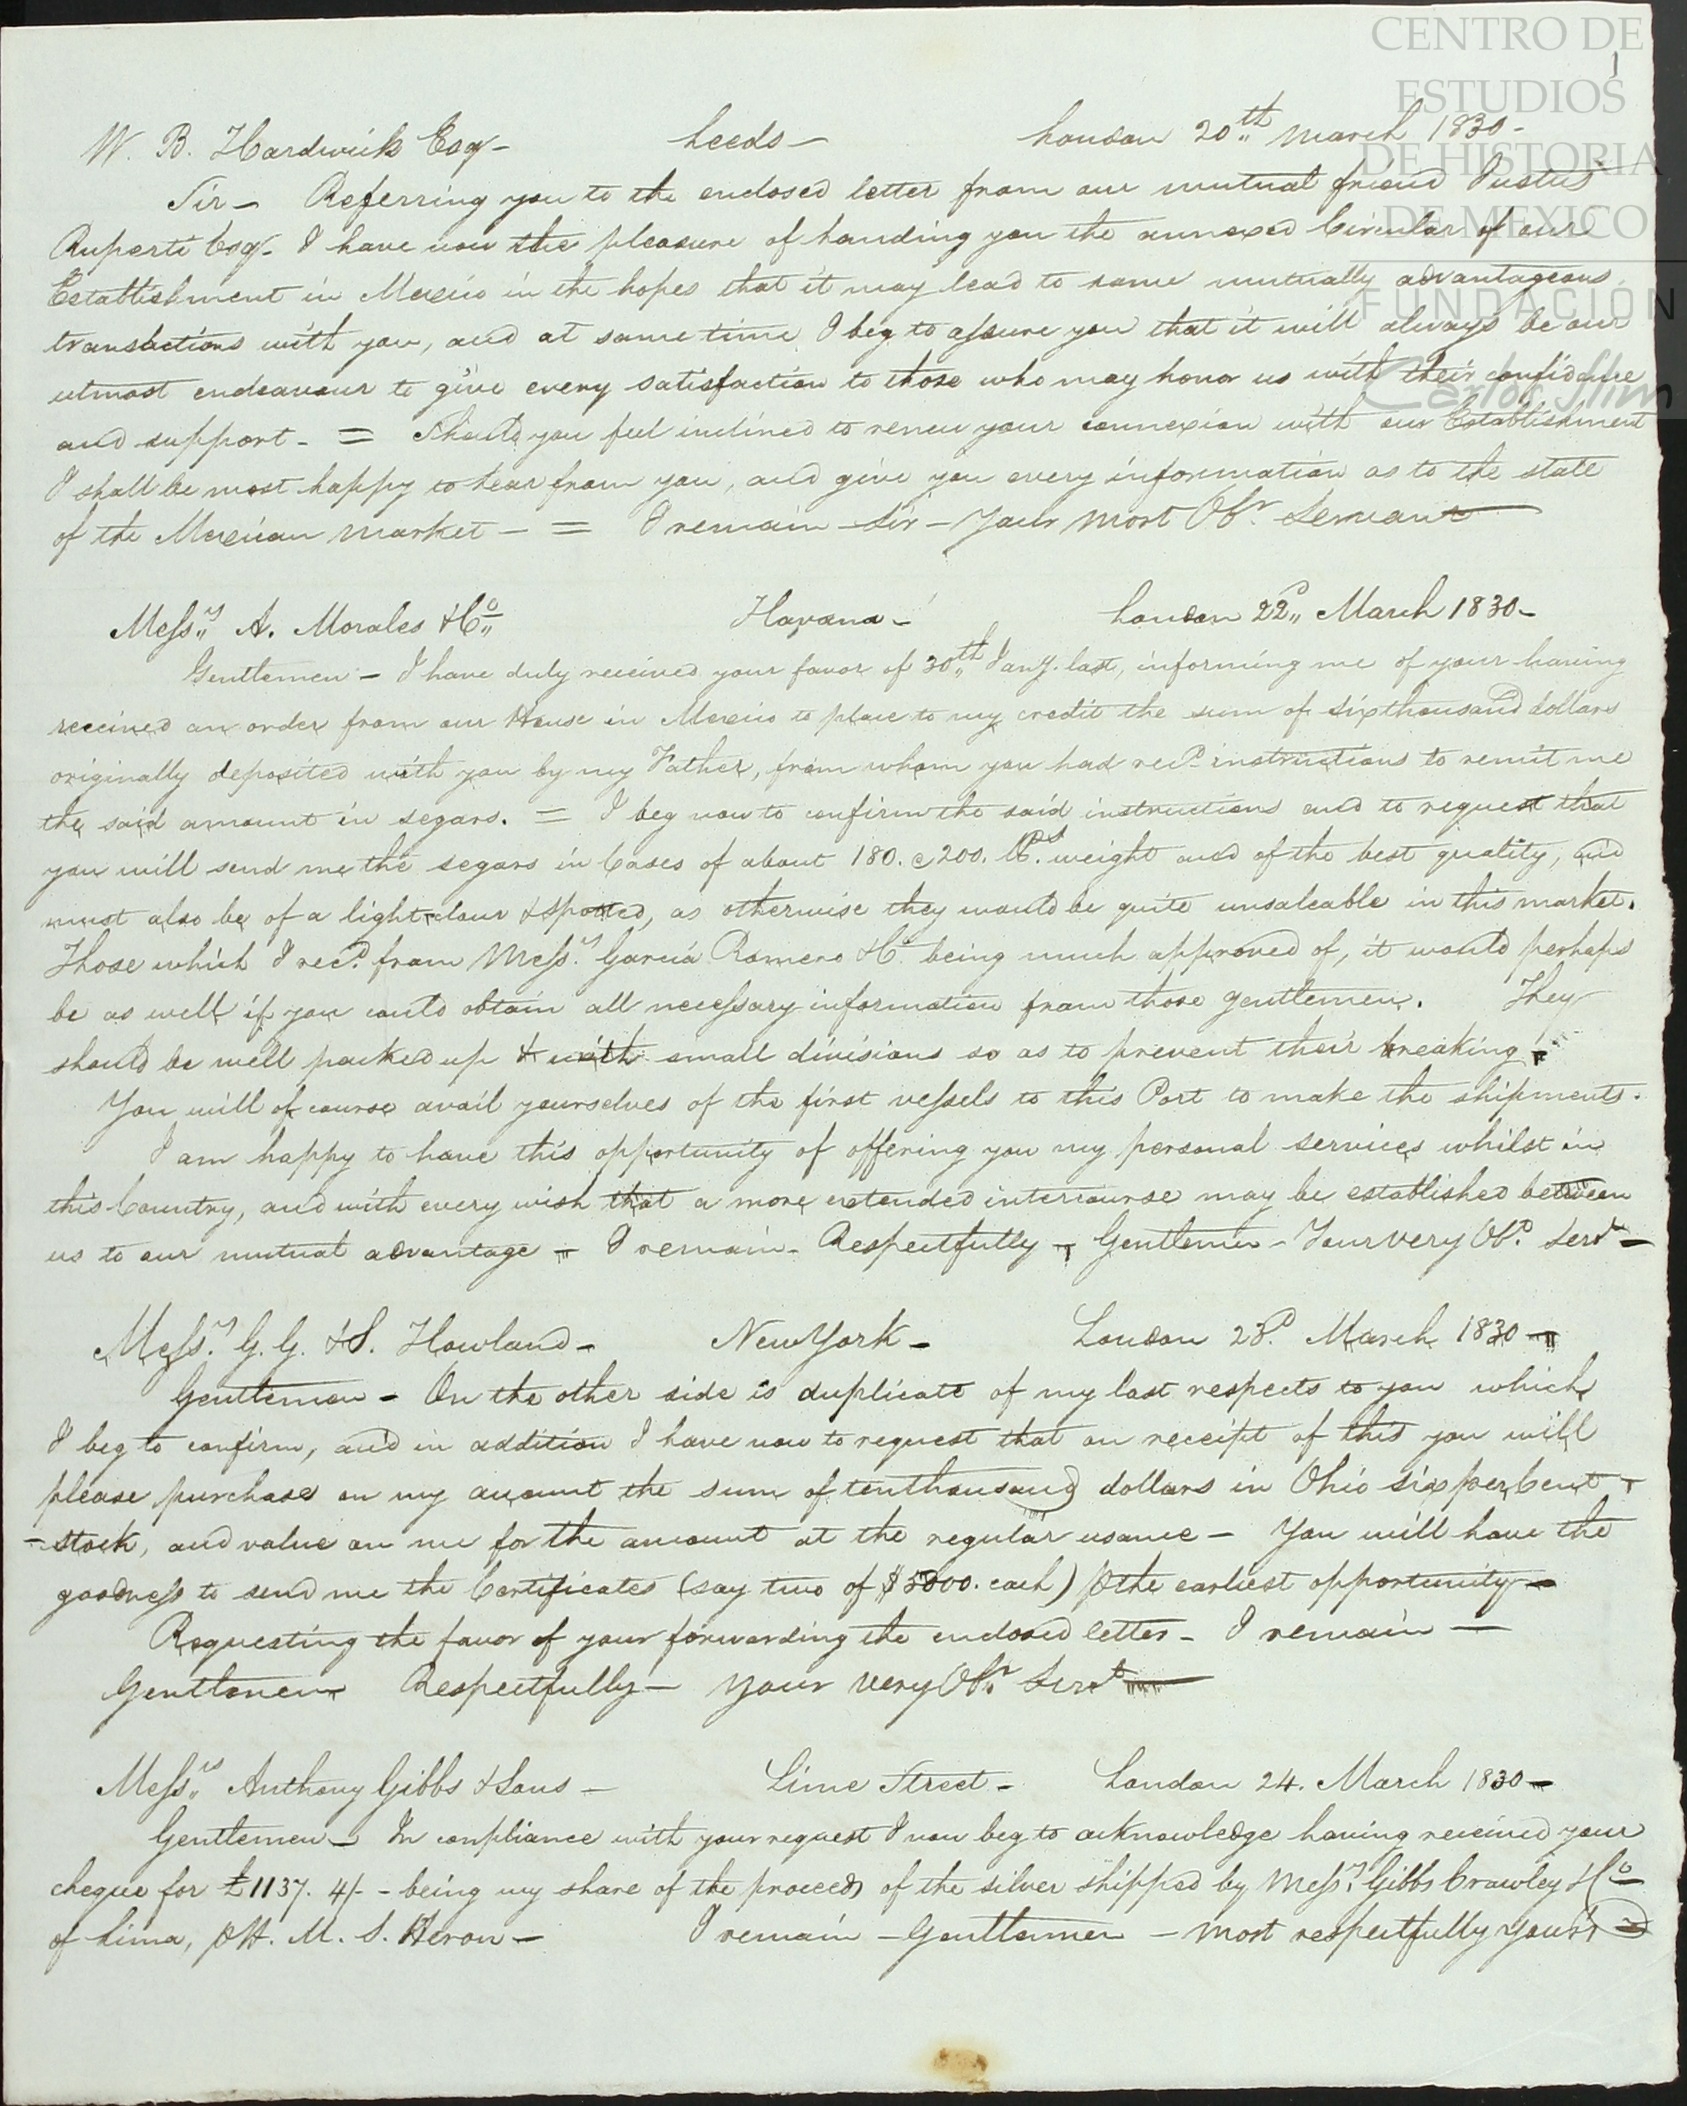 CENTRO DE
ESTUDIOS
DE HISTORIA
DE MEXICO
FUNDACIÓN
Carlos Slim
1
W. B. Hardwick Esqr- Leeds- London 20th March 1830-
Sir- Referring you to the enclosed letter from our mutual friend Justus
Ruperti Esqr- I have now the pleasure of handing you the annexed Circular of our
Establishment in Mexico in the hopes that it may lead to some mutually advantageous
transactions with you, and at same time I beg to assure you that it will always be our
utmost endeavour to give every satisfaction to those who may honor us with their confidence
and support- = Should you feel inclined to renew your connexion with our Establishment
I shall be most happy to hear from you, and give you every information as to the state
of the Mexican market- = I remain-Sir-Your most Obt. Servant
Messrs A. Morales & Co Havana- London 22d March 1830-
Gentlemen- I have duly received your favor of 30th Jany. last, informing me of your having
received an order from our House in Mexico to place to my credit the sum of sixthousand dollars
originally deposited with you by my Father, from whom you had recd. instructions to remit me
the said amount in segars. = I beg now to confirm the said instructions and to request that
you will send me the segars in Cases of about 180. @ 200. lbs. weight and of the best quality, and
must also be of a light colour & spotted, as otherwise they would be quite unsaleable in this market.
Those which I recd. from Messrs. Garcia Romero & Co. being much approved of, it would perhaps
be as well if you could obtain all necessary information from those gentlemen. They
should be well packed up & with small divisions so as to prevent their breaking.
You will of course avail yourselves of the first vessels to this Port to make the shipments.
I am happy to have this opportunity of offering you my personal services whilst in
this Country, and with every wish that a more extended intercourse may be established between
us to our mutual advantage- I remain- Respectfully- Gentlemen- Your very Obt. Servt-
Messrs. G. G. & S. Howland- New York- London 23d. March 1830-
Gentlemen- On the other side is duplicate of my last respects to you which
I beg to confirm, and in addition I have now to request that on receipt of this you will
please purchase on my account the sum of tenthousand dollars in Ohio six per Cent-
-stock, and value on me for the amount at the regular usance- You will have the
goodness to send me the Certificates (say two of $5000. each) p the earliest opportunity-
Requesting the favor of your forwarding the enclosed letter- I remain-
Gentlemen Respectfully- Your very Obt. Servt-
Messrs Anthony Gibbs & Sons- Lime Street- London 24. March 1830-
Gentlemen- In compliance with your request I now beg to acknowledge having received your
cheque for £1137. 4/- - being my share of the proceeds of the silver shipped by Messrs. Gibbs Crawley & Co
of Lima, p H. M. S. Heron- I remain-Gentlemen-most respectfully Your's